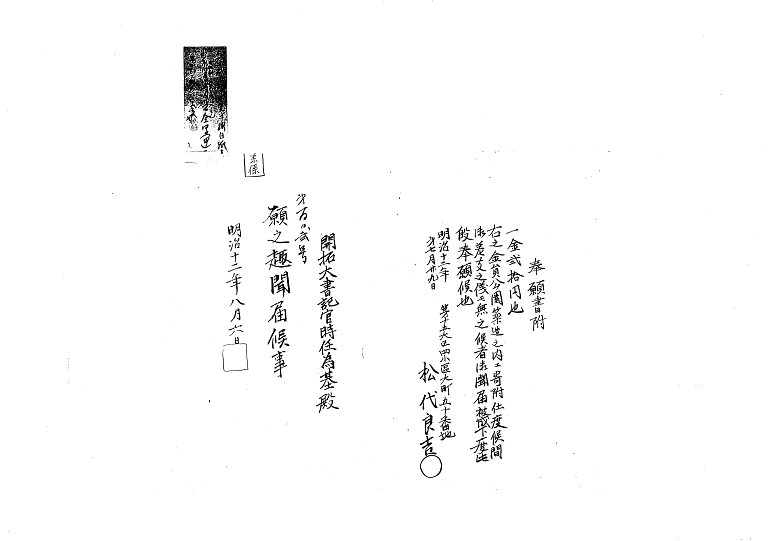 奉願書附
一金弐拾円也
右之金員公園築造之内エ寄附仕度候間
御差支之儀モ無之候者御聞届被成下度此
段奉願候也
明治十二年
七月廿九日
第十五大区四小区大町五十番地
松代良吉
開拓大書記官時任為基殿
願之趣聞届候事
明治十二年八月六日